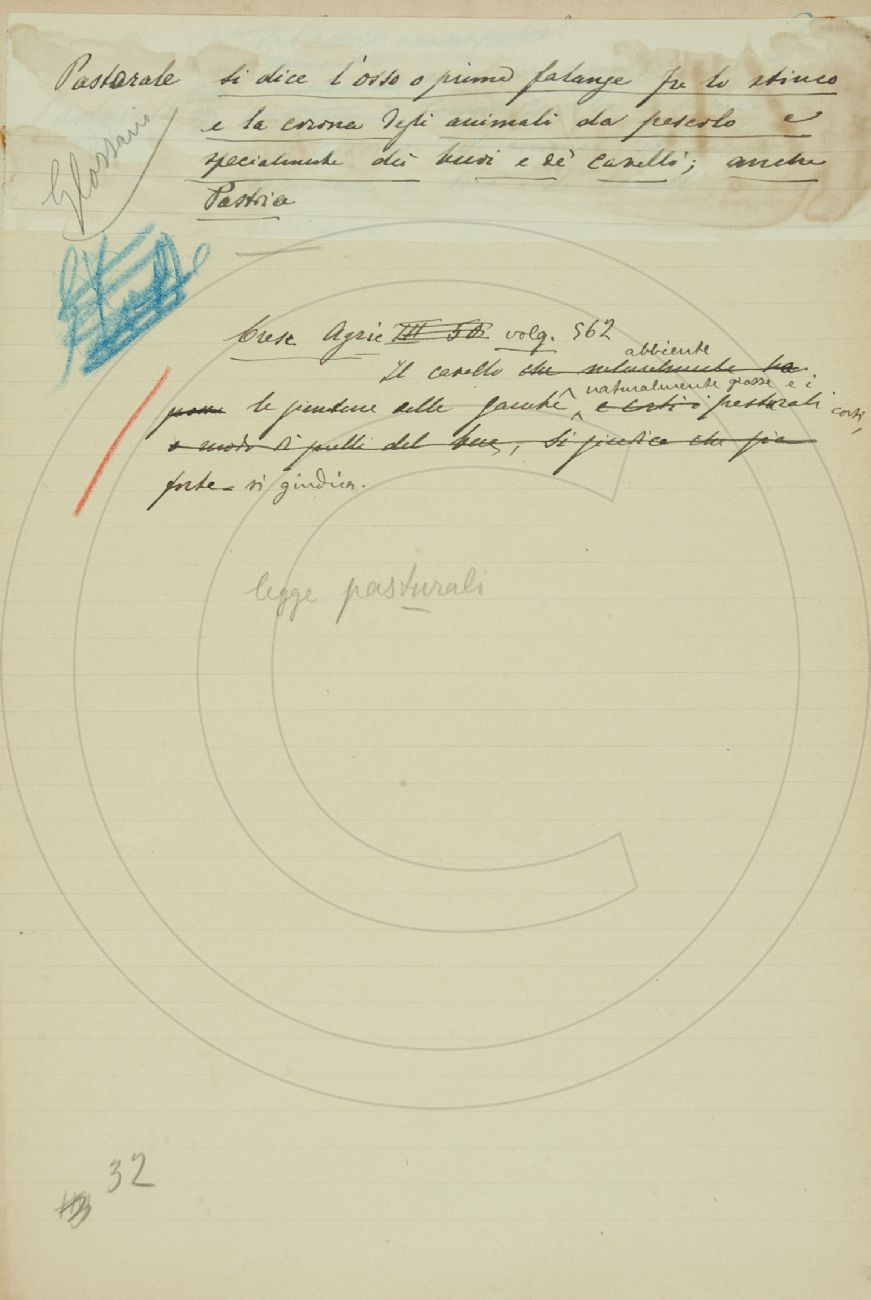 Pastorale si dice l'osso o prima falange fra lo stinco
e la corona degli animali da pascolo e
specialmente dei buoi e de' cavalli; anche
Pastoia
Glossario
Cresc. Agric III 50 volg. 562
abbiente
Il cavallo che naturalmente ha
naturalmente grosse e i
le giunture alle gambe e corti i pastorali corti,
a modo di quelli del bue, si giudica che sia
forte - si giudica.
legge pasturali
32